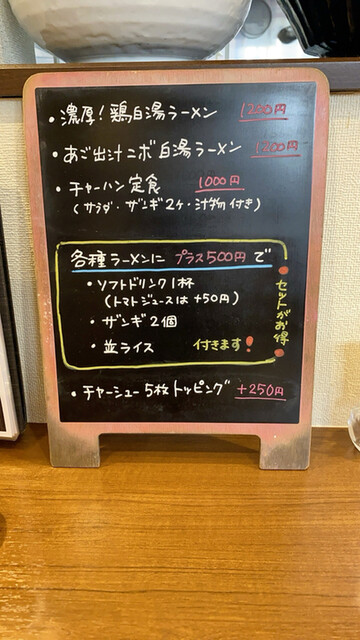 ・濃厚！鶏白湯ラーメン 1200円
・あご出汁ニボ白湯ラーメン 1200円
・チャーハン定食 1000円
(サラダ・ザンギ2ケ・汁物付き)
各種ラーメンに プラス500円で
・ソフトドリンク1杯
(トマトジュースは+50円)
・ザンギ2個
・並ライス 付きます！
・セットがお得・
・チャーシュー5枚トッピング +250円